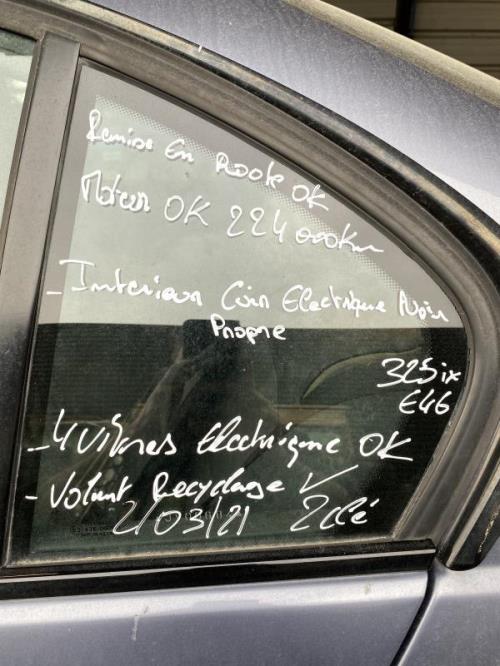 Remise En Route OK
Moteur OK 224 000Km
- Interieur Cuir Electrique Noir
Propre
325ix
E46
- 4 Vitres Electrique OK
- Volant Recyclage ✓
2/03/21 2 clé